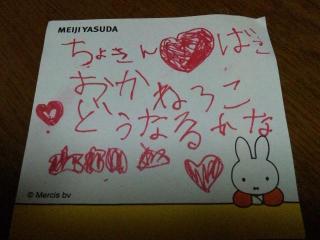 MEIJI YASUDA
ちょきんばこ
おかねろこ
どうなるかな
© Mercis bv